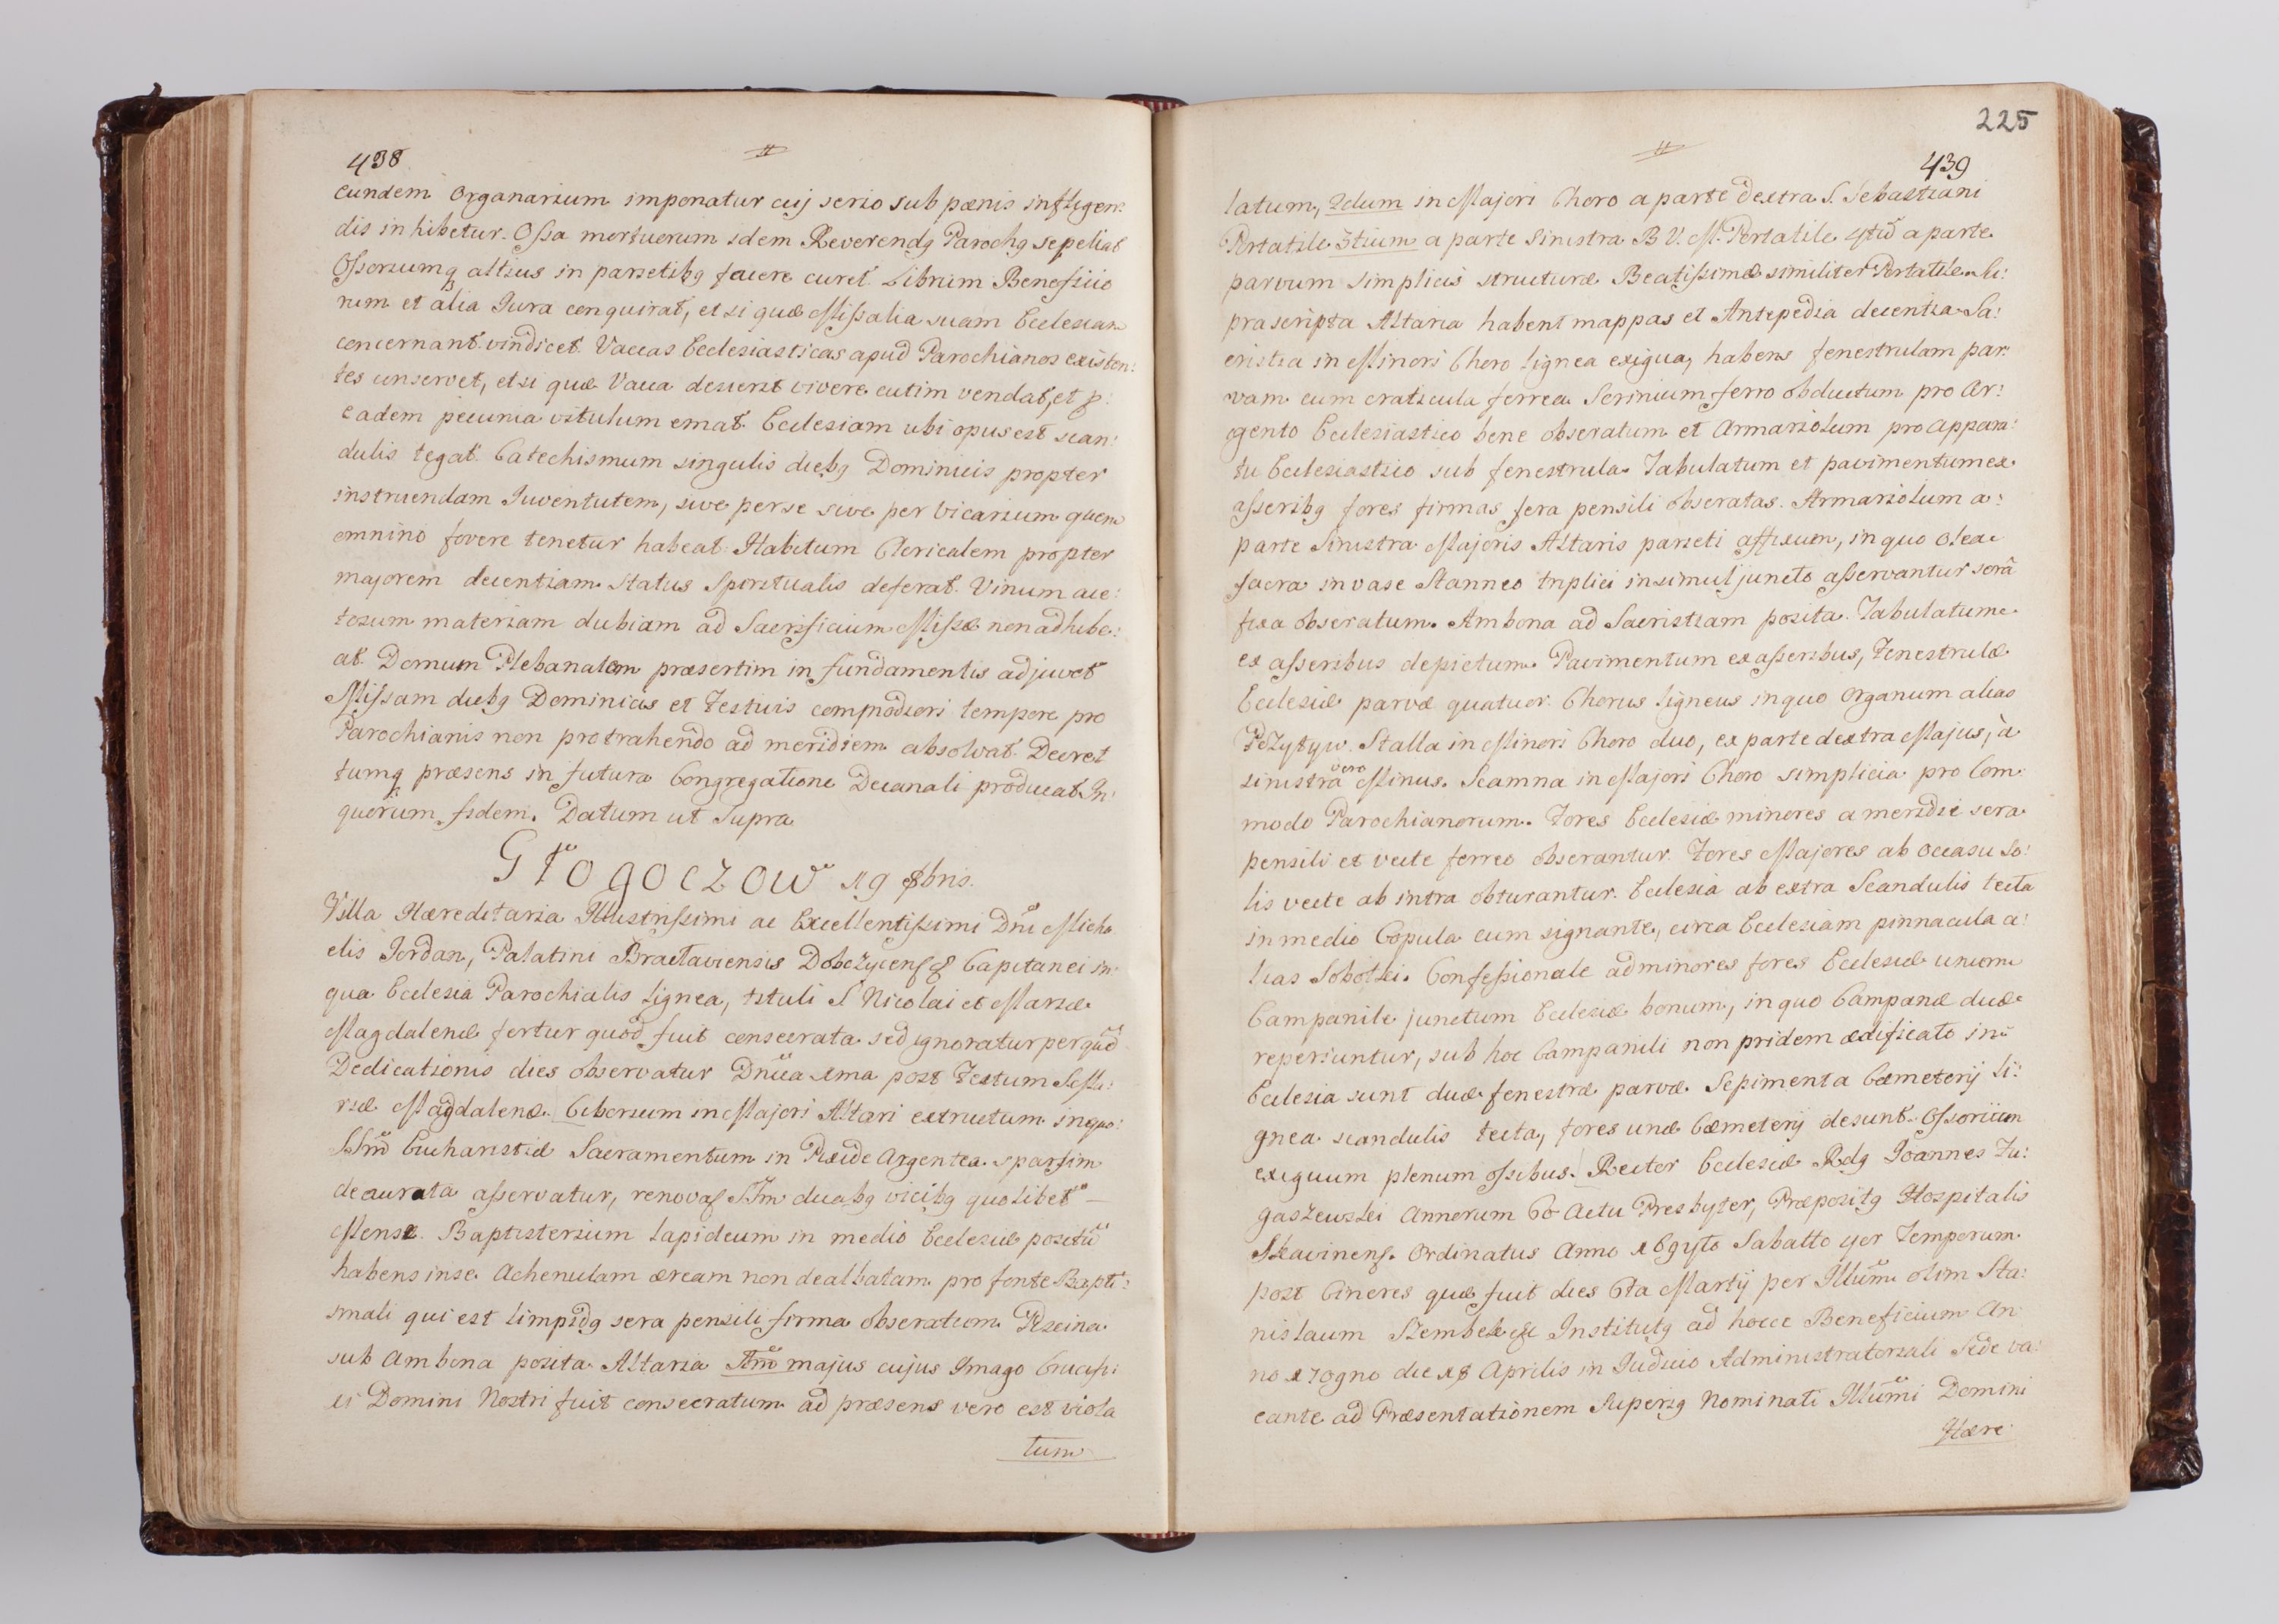 438
cundem Organarium imponatur cuj serio sub pœnis infligen:
dis inhibetur. Ossa mortuorum idem Reverendg Parochg sepeliat
Ossoriumq altius in parietibg facere curet. Librum Beneficio
rum et alia Jura conquirat, et si quæ Missalia suam Ecclesiam
concernant vindicet. Vaccas Ecclesiasticas apud Parochianos existen:
tes conservet, et si quæ Vacca desierit vivere cutim vendat, et p:
eadem pecunia vitulum emat. Ecclesiam ubi opus est scan:
dulis tegat. Catechismum singulis diebg Dominicis propter
instruendam Iuventutem, sive per se sive per Vicarium quem
omnino fovere tenetur habeat. Habitum Clericalem propter
majorem decentiam status Spiritualis deferat. Vinum ace:
tosum materiam dubiam ad Sacrificium Missæ non adhibe:
at. Domum Plebanalem præsertim in fundamentis adjuvet
Missam diebg Dominicis et Festivis commodiori tempore pro
Parochianis non protrahendo ad meridiem absolvat. Decret
tumq præsens in futura Congregatione Decanali producat. In:
quorum fidem. Datum ut Supra
Głogoczow 19 8bris.
Villa Hæreditaria Illustrissimi ac Excellentissimi Dni Micha
elis Jordan, Palatini Bractaviensis Dobczycens & Capitanei in:
qua Ecclesia Parochialis lignea, tituli S Nicolai et Mariæ
Magdalenæ fertur quod fuit consecrata sed ignoratur per quē
Dedicationis dies observatur Dnica 1ma post Festum S. Ma:
riæ Magdalenæ. Ciborium in Majori Altari extructum in quo:
SSm̃ Eucharistiæ Sacramentum in Pixide Argentea sparsim
deaurata asservatur, renovaʒ SSm duabg vicibg quolibet
Mense. Baptisterium lapideum in medio Ecclesiæ positū
habens in se Achenulam æream non dealbatam pro fonte Bapti:
smali qui est limpidg sera pensili firma obseratum. Piscina
sub Ambona posita. Altaria 1m̃o majus cujus Imago Crucifi:
xi Domini Nostri fuit consecratum ad præsens vero est viola
tum
225
439
latum, 2dum in Majori Choro a parte dextra S. Sebastiani
Portatile 3tium a parte Sinistra B V. M. Portatile 4tũ a parte
parvum simplicis structuræ Beatissimæ similiter Portatile. Su:
prascripta Altaria habent mappas et Antepedia decentia. Sa:
cristia in Minori Choro lignea exigua, habens fenestrulam par:
vam cum craticula ferrea. Scrinium ferro obductum pro Ar:
gento Ecclesiastico bene obseratum et Armariolum pro appara:
tu Ecclesiastico sub fenestrula. Tabulatum et pavimentum ex
asseribg fores firmas sera pensili obseratas. Armariolum a:
parte Sinistra Majoris Altaris parieti affixum, in quo olea
sacra in vase stanneo triplici insimul juncto asservantur serâ
fixa obseratum. Ambona ad Sacristiam posita. Tabulatum
ex asseribus depictum. Pavimentum ex asseribus, Fenestrulæ
Ecclesiæ parvæ quatuor. Chorus ligneus in quo Organum alias
Pozytyw. Stalla in Minori Choro duo, ex parte dextra Majus, à
sinistra vero Minus. Scamna in Majori Choro simplicia pro Com:
modo Parochianorum. Fores Ecclesiæ minores a meridie sera
pensili et vecte ferreo obserantur. Fores Majores ab occasu So:
lis vecte ab intra obturantur. Ecclesia ab extra Scandulis tecta
in medio Copula cum signante, circa Ecclesiam pinnacula a:
lias Sobotki. Confessionale ad minores fores Ecclesiæ unum
Campanile junctum Ecclesiæ bonum, in quo Campanæ duæ
reperiuntur, sub hoc Campanili non pridem ædificato in:
Ecclesia sunt duæ fenestræ parvæ. Sepimenta Cæmeterij li:
gnea scandulis tecta, fores unæ Cæmeterij desunt. Ossorium
exiguum plenum ossibus. Rector Ecclesiæ Rdg Joannes Fu:
gaszewski Annorum 60 Actu Presbyter, Præpositg Hospitalis
Skavinens. Ordinatus Anno 1694to Sabatto 4or Temporum
post Cineres quæ fuit dies 6ta Martij per Illūm olim Sta:
nislaum Szembek &c Institutg ad hocce Beneficium An
no 1709no die 18 Aprilis in Judicio Administratoriali Sede va:
cante ad Præsentationem Superig Nominati Illūmi Domini
Hære